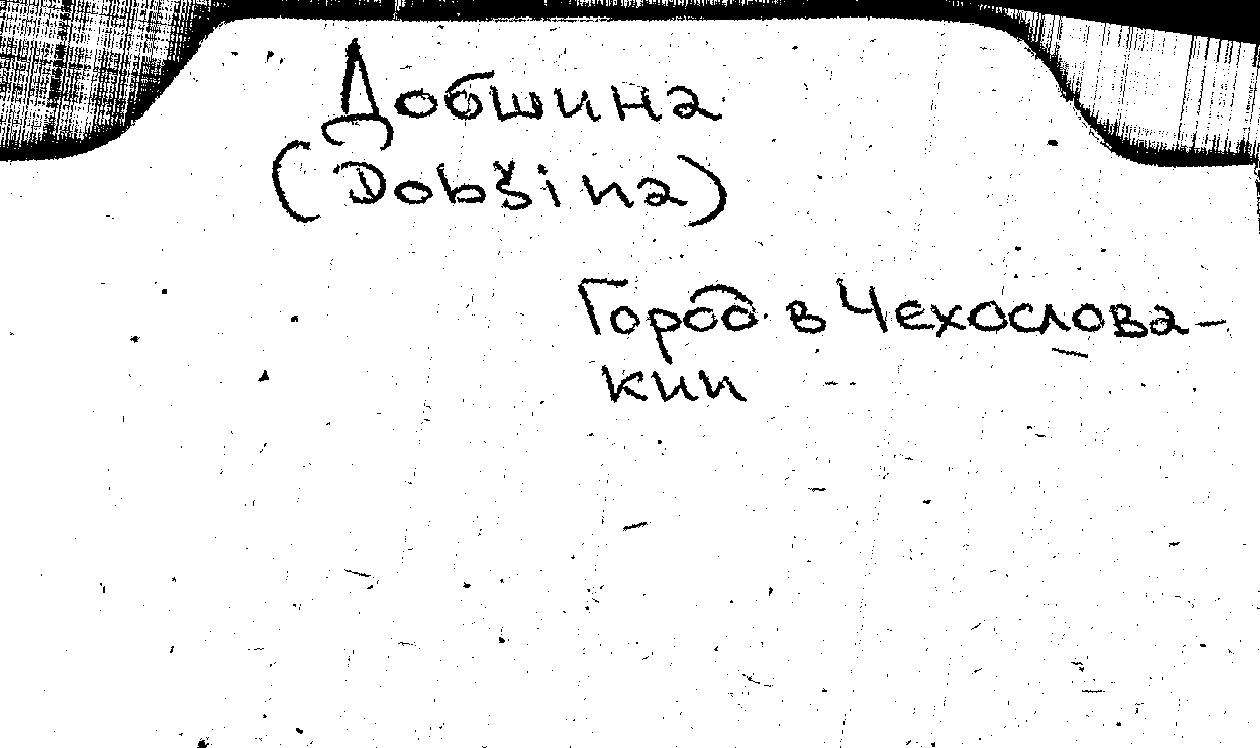 Добшина
(Dobšina)
Город в Чехослова-
кии